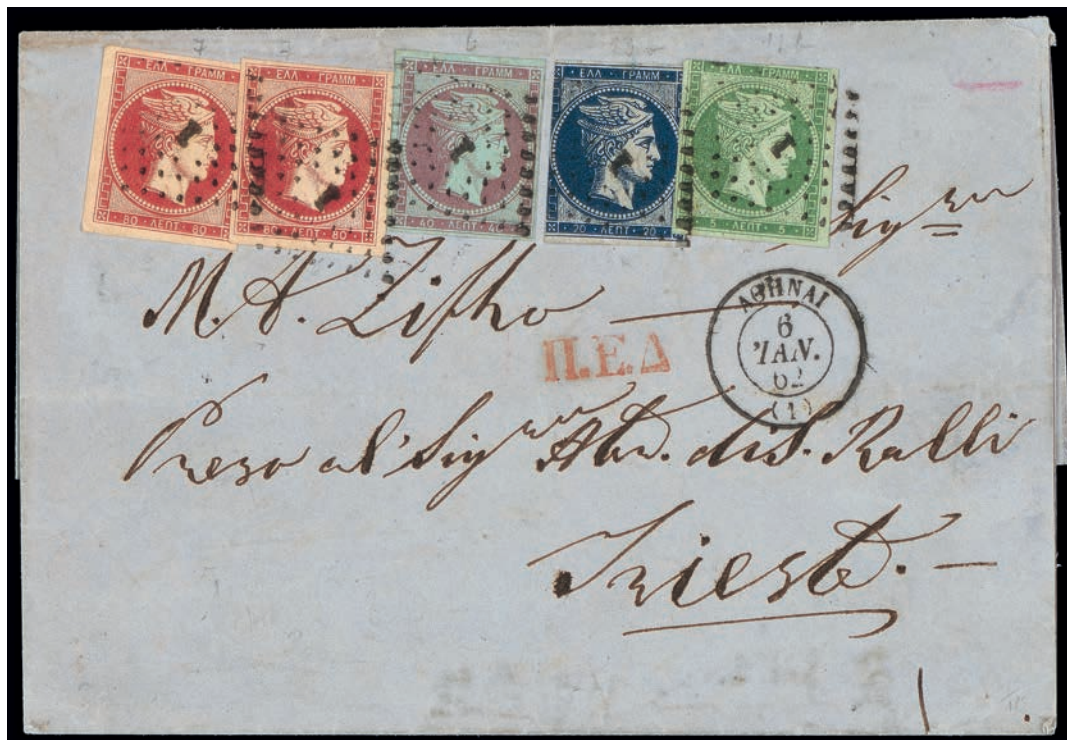 ΕΛΛ · ΓΡΑΜΜ
80 · ΛΕΠΤ · 80
ΕΛΛ · ΓΡΑΜΜ
80 · ΛΕΠΤ · 80
ΕΛΛ · ΓΡΑΜΜ
40 · ΛΕΠΤ · 40
ΕΛΛ · ΓΡΑΜΜ
20 · ΛΕΠΤ · 20
ΕΛΛ · ΓΡΑΜΜ
5 · ΛΕΠΤ · 5
1
1
1
1
1
Sig
M. A. Zifho
Π.Ε.Δ
ΑΘΗΝΑΙ
6
ΊΑΝ.
62
(1)
Preso al' Sig di S. Ralli
Trieste. —